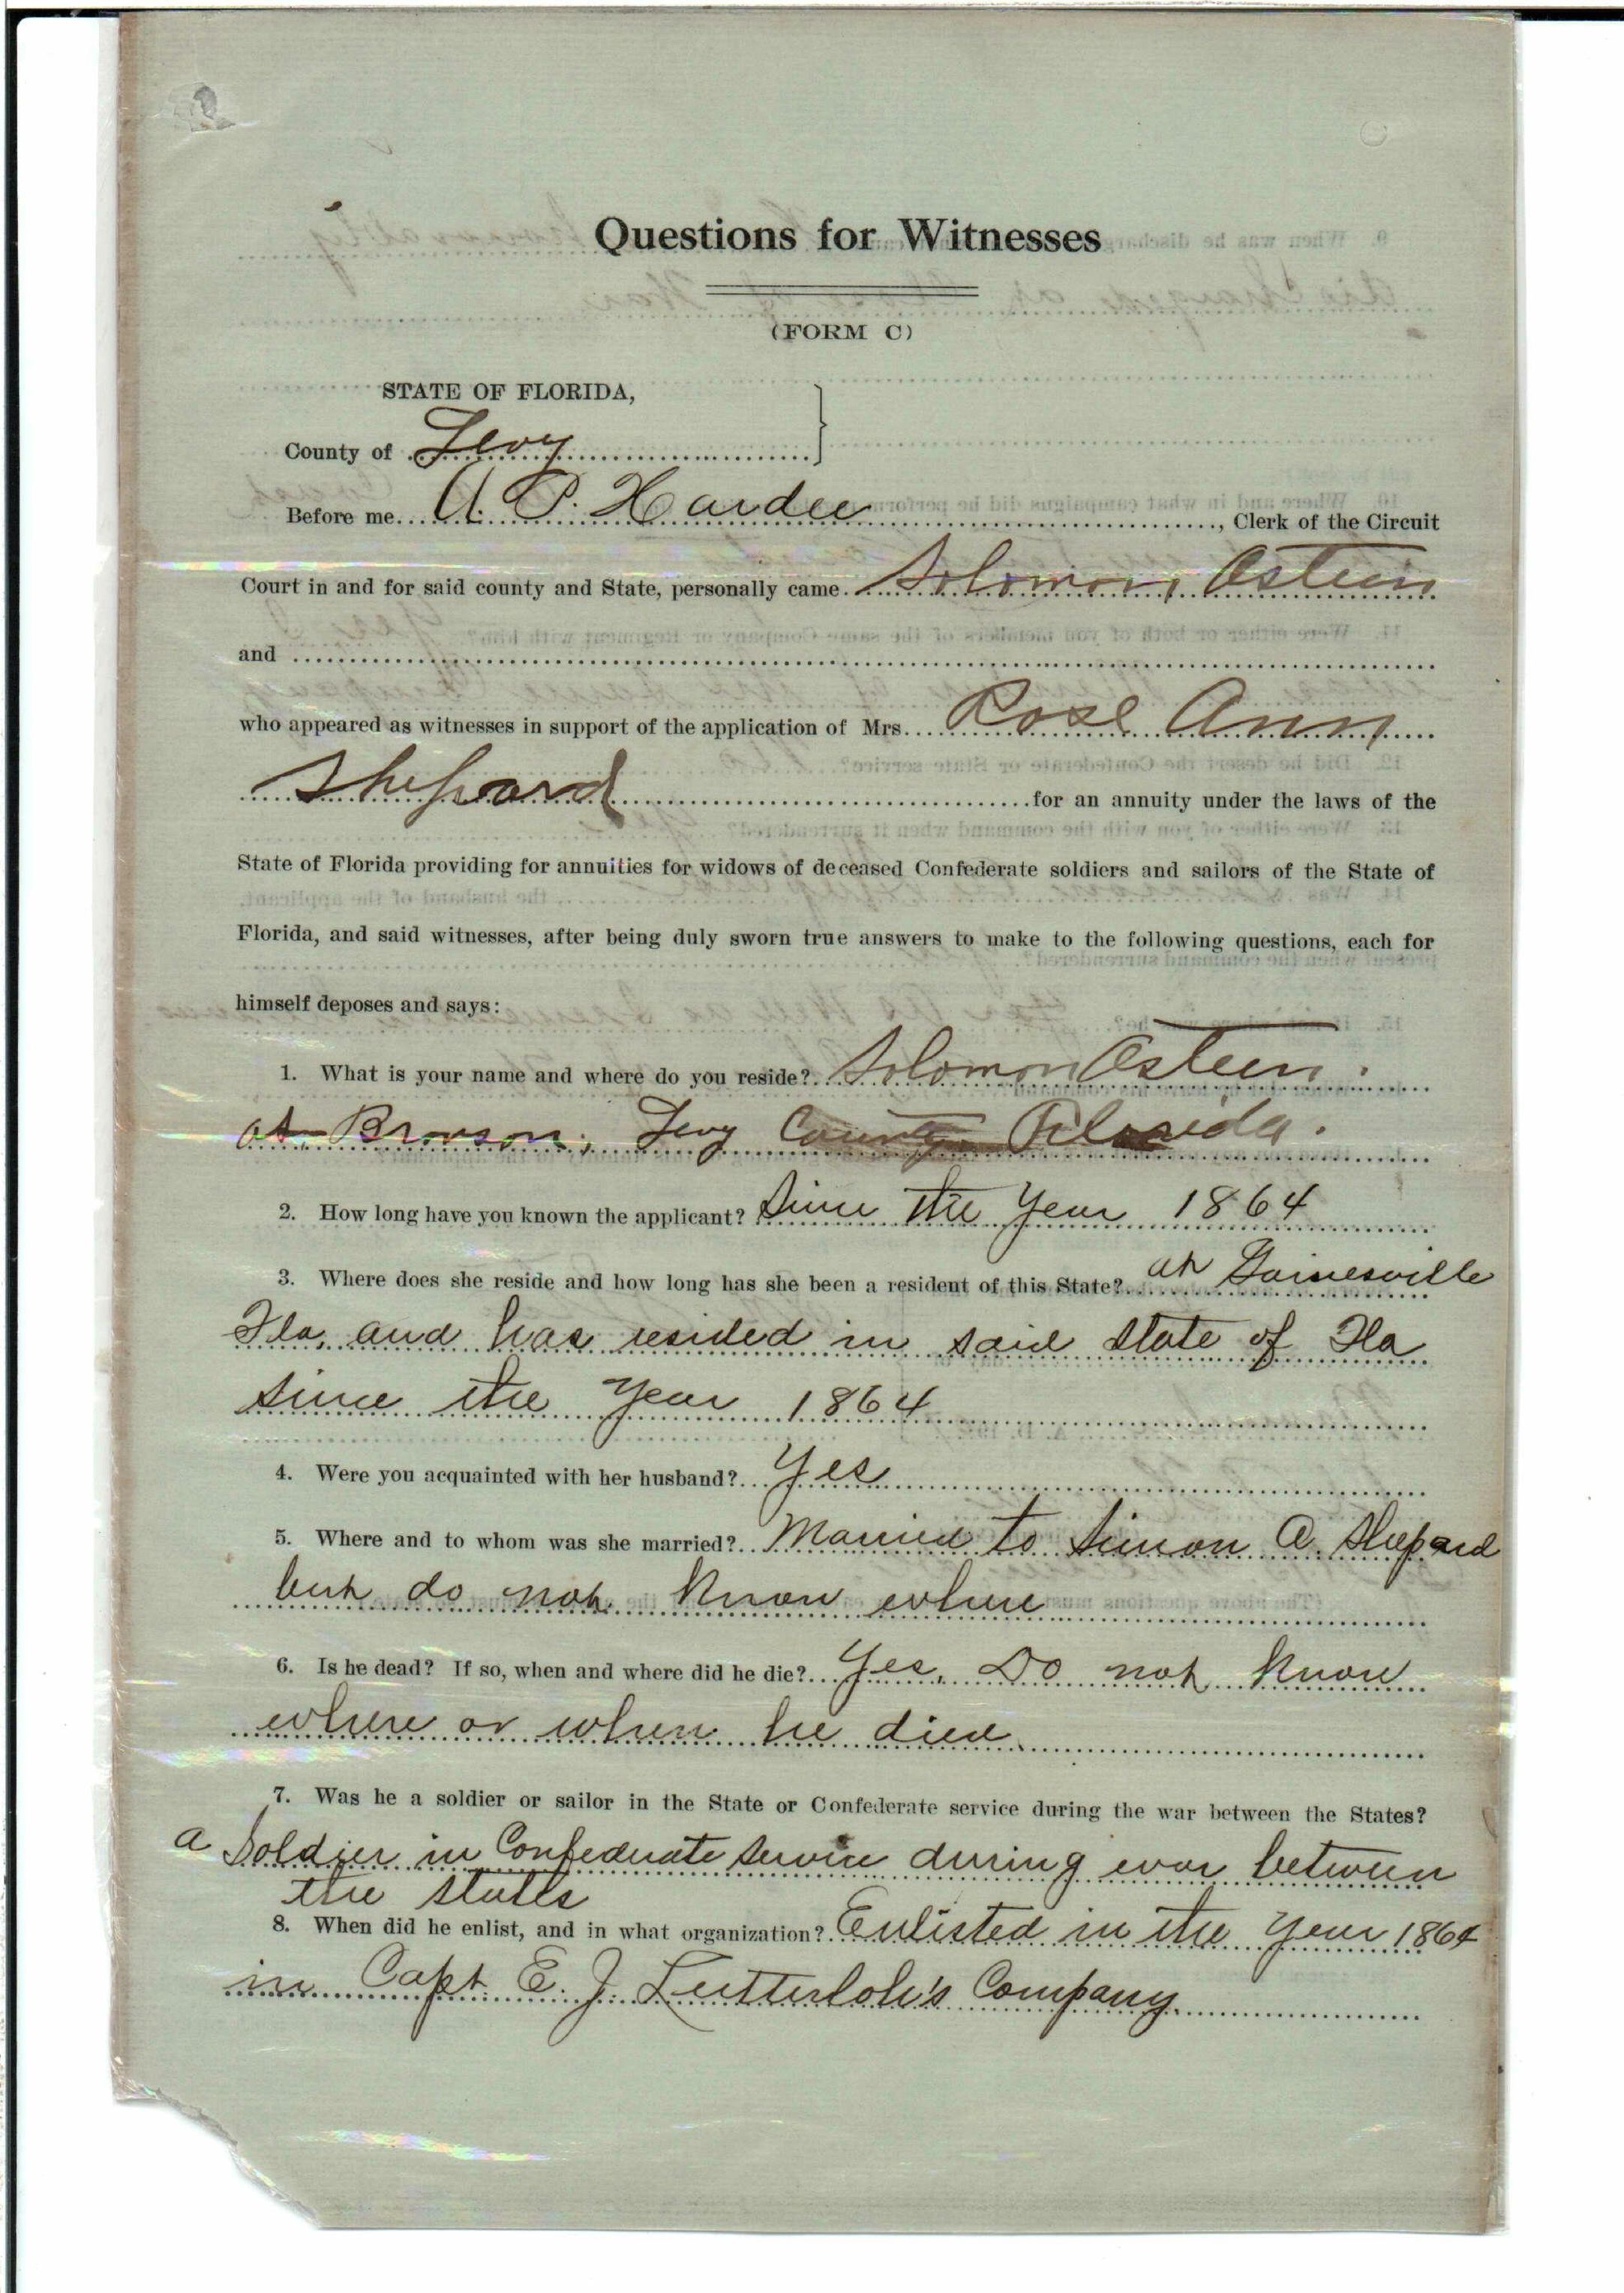 Questions for Witnesses
(FORM C)
STATE OF FLORIDA,
County of Levy
Before me A. P. Hardee, Clerk of the Circuit
Court in and for said county and State, personally came Solomon Osteen
and
who appeared as witnesses in support of the application of Mrs. Rose Ann
Shepard for an annuity under the laws of the
State of Florida providing for annuities for widows of deceased Confederate soldiers and sailors of the State of
Florida, and said witnesses, after being duly sworn true answers to make to the following questions, each for
himself deposes and says:
1. What is your name and where do you reside? Solomon Osteen.
at Bronson, Levy County Florida.
2. How long have you known the applicant? Since the Year 1864
3. Where does she reside and how long has she been a resident of this State? at Gainesville
Fla, and has resided in said State of Fla
Since the Year 1864
4. Were you acquainted with her husband? Yes
5. Where and to whom was she married? Married to Simon A. Shepard
but do not Know where
6. Is he dead? If so, when and where did he die? Yes, Do not Know
where or when he died
7. Was he a soldier or sailor in the State or Confederate service during the war between the States?
a Soldier in Confederate Service during war between
the states
8. When did he enlist, and in what organization? Enlisted in the Year 1864
in Capt. E. J. Lutterloh's Company.